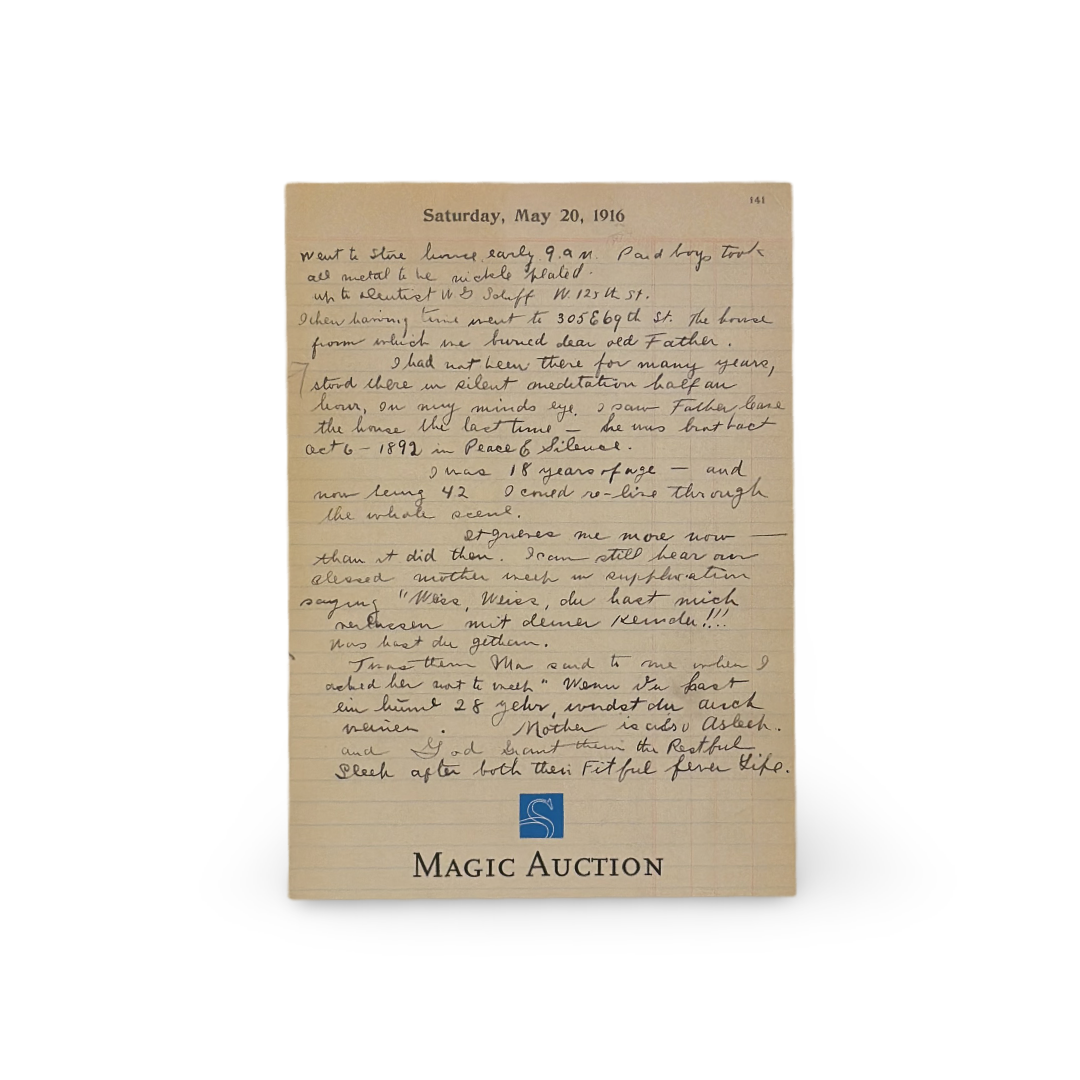 141
Saturday, May 20, 1916
went to Store house early 9.a.m. Paid boys took
all metal to be nickle plated.
up to Dentist W. 125th St.
Then having time went to 305 E 69th St. The house
from which we buried dear old Father.
I had not been there for many years,
stood there in silent meditation half an
hour, In my minds eye, I saw Father leave
the house the last time — he was
Oct 6 – 1892 in Peace & Silence.
I was 18 years of age — and
now being 42 I coued re-live through
the whole scene.
It grieves me more now —
than it did then. I can still hear our
blessed mother weep in supplication
saying "Weiss, Weiss, du hast mich
verlassen mit deiner Keinder!!!
was hast du gethan.
Twas then Ma said to me when I
asked her not to weep "Wenn du hast
ein 28 yehr, wirdst du auch
weinen. Mother is also Asleep.
and God Grant them the Restful
Sleep after both their Fitful fever Life.
S
MAGIC AUCTION